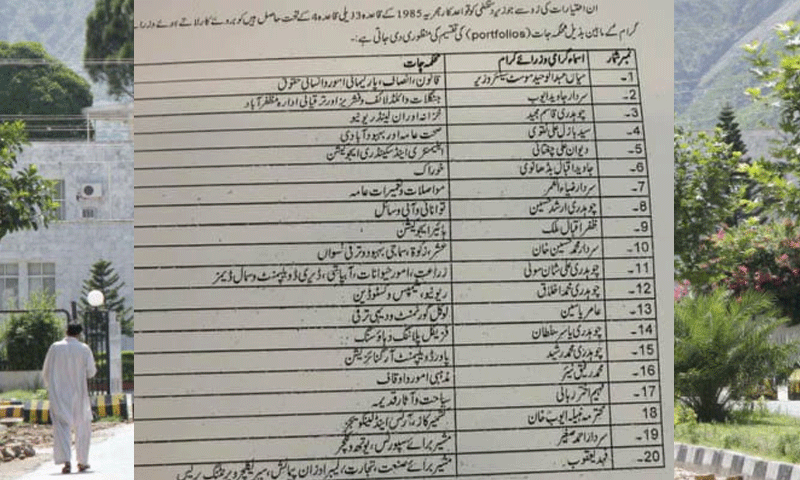 ان اختیارات کی رو سے جو وزیر منتظمی کو قواعد کار مجریہ 1985 کے قاعدہ 3 ذیلی قاعدہ 4 کے تحت حاصل ہیں کو بروئے کار لاتے ہوئے وزراء
کرام کے مابین بذیل محکمہ جات (portfolios) کی تقسیم کی منظوری دی جاتی ہے:۔
نمبر شمار اسماء گرامی وزرائے کرام محکمہ جات
1۔ میاں عبدالوحید موسٹ سینئر وزیر قانون، انصاف، پارلیمانی امور و انسانی حقوق
2۔ سردار جاوید ایوب جنگلات وائلڈ لائف و فشریز اور ترقیاتی ادارہ مظفرآباد
3۔ چوہدری قاسم مجید خزانہ اور ان لینڈ ریونیو
4۔ سید بازل علی نقوی صحت عامہ اور بہبود آبادی
5۔ دیوان علی چغتائی ایلیمنٹری اینڈ سکینڈری ایجوکیشن
6۔ جاوید اقبال بڈھانوی خوراک
7۔ سردار ضیاء القمر مواصلات و تعمیرات عامہ
8۔ چوہدری ارشد حسین توانائی و آبی وسائل
9۔ ظفر اقبال ملک ہائیر ایجوکیشن
10۔ سردار محمد حسین خان عشر، زکوٰۃ، سماجی بہبود و ترقی نسواں
11۔ چوہدری علی شان سونی زراعت، امور حیوانات، آبپاشی، ڈیری ڈویلپمنٹ و سمال ڈیمز
12۔ چوہدری محمد اخلاق ریونیو، سٹیمپس و کسٹوڈین
13۔ عامر یاسین لوکل گورنمنٹ و دیہی ترقی
14۔ چوہدری یاسر سلطان فزیکل پلاننگ و ہاؤسنگ
15۔ چوہدری محمد رشید پاور ڈویلپمنٹ آرگنائزیشن
16۔ محمد رفیق نیئر مذہبی امور و اوقاف
17۔ فہیم اختر ربانی سیاحت و آثار قدیمہ
18 محترمہ نبیلہ ایوب خان کشمیر کاز، آرٹس اینڈ لینگویجز
19۔ سردار احمد صغیر مشیر برائے سپورٹس، یوتھ و کلچر
20۔ فہد یعقوب مشیر برائے صنعت، تجارت، لیبر اوزان پیمائش، سیریکلچر و پرنٹنگ پریس